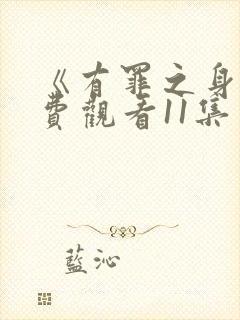 《有罪之身
費觀看11集
藍沁